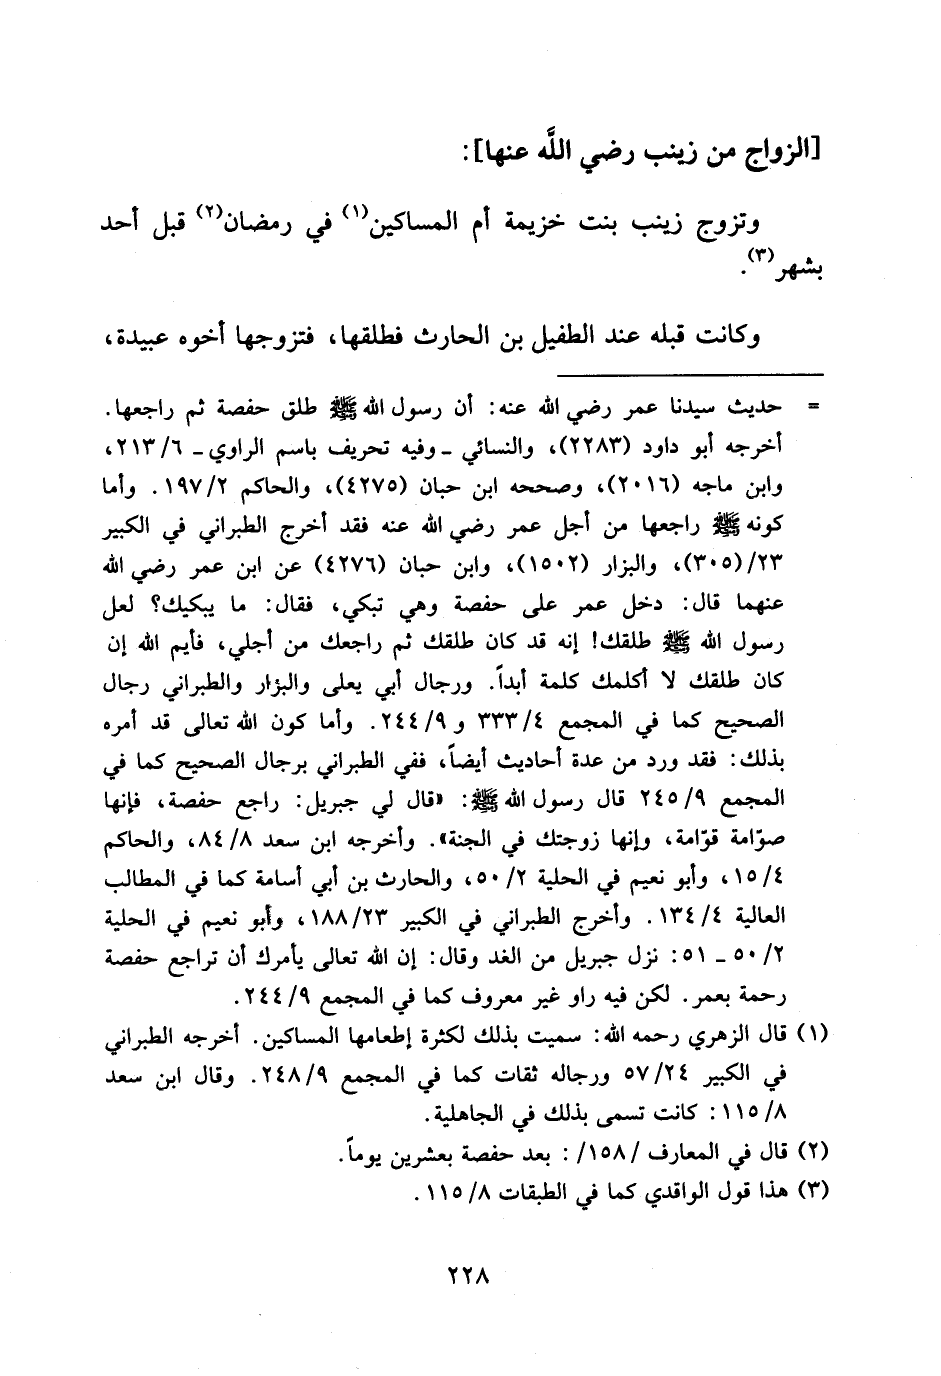 [الزواج من زينب رضي اللَّه عنها]:
وتزوج زينب بنت خزيمة أم المساكين(١) في رمضان(٢) قبل أحد
بشهر(٣).
وكانت قبله عند الطفيل بن الحارث فطلقها، فتزوجها أخوه عبيدة،
= حديث سيدنا عمر رضي الله عنه: أن رسول الله ﷺ طلق حفصة ثم راجعها.
أخرجه أبو داود (٢٢٨٣)، والنسائي ـ وفيه تحريف باسم الراوي ـ ٢١٣/٦،
وابن ماجه (٢٠١٦)، وصححه ابن حبان (٤٢٧٥)، والحاكم ١٩٧/٢. وأما
كونه ﷺ راجعها من أجل عمر رضي الله عنه فقد أخرج الطبراني في الكبير
٢٣/(٣٠٥)، والبزار (١٥٠٢)، وابن حبان (٤٢٧٦) عن ابن عمر رضي الله
عنهما قال: دخل عمر على حفصة وهي تبكي، فقال: ما يبكيك؟ لعل
رسول الله ﷺ طلقك! إنه قد كان طلقك ثم راجعك من أجلي، فأيم الله إن
كان طلقك لا أكلمك كلمة أبداً. ورجال أبي يعلى والبزار والطبراني رجال
الصحيح كما في المجمع ٣٣٣/٤ و ٢٤٤/٩. وأما كون الله تعالى قد أمره
بذلك: فقد ورد من عدة أحاديث أيضاً، ففي الطبراني برجال الصحيح كما في
المجمع ٢٤٥/٩ قال رسول الله ﷺ: «قال لي جبريل: راجع حفصة، فإنها
صوّامة قوّامة، وإنها زوجتك في الجنة». وأخرجه ابن سعد ٨٤/٨، والحاكم
١٥/٤، وأبو نعيم في الحلية ٥٠/٢، والحارث بن أبي أسامة كما في المطالب
العالية ١٣٤/٤. وأخرج الطبراني في الكبير ١٨٨/٢٣، وأبو نعيم في الحلية
٥٠/٢ ـ ٥١: نزل جبريل من الغد وقال: إن الله تعالى يأمرك أن تراجع حفصة
رحمة بعمر. لكن فيه راو غير معروف كما في المجمع ٢٤٤/٩.
(١) قال الزهري رحمه الله: سميت بذلك لكثرة إطعامها المساكين. أخرجه الطبراني
في الكبير ٥٧/٢٤ ورجاله ثقات كما في المجمع ٢٤٨/٩. وقال ابن سعد
١١٥/٨: كانت تسمى بذلك في الجاهلية.
(٢) قال في المعارف /١٥٨/: بعد حفصة بعشرين يوماً.
(٣) هذا قول الواقدي كما في الطبقات ١١٥/٨.
٢٢٨